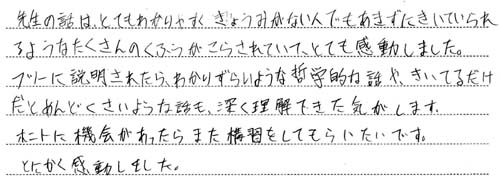 先生の話は、とてもわかりやすく きょうみがない人でもあきずにきいていられ
るようなたくさんのくふうがこらされていて、とても感動しました。
フツーに説明されたら、わかりずらいような哲学的な話や、きいてるだけ
だとめんどくさいような話も、深く理解できた気がします。
ホントに機会があったらまた講習をしてもらいたいです。
とにかく感動しました。